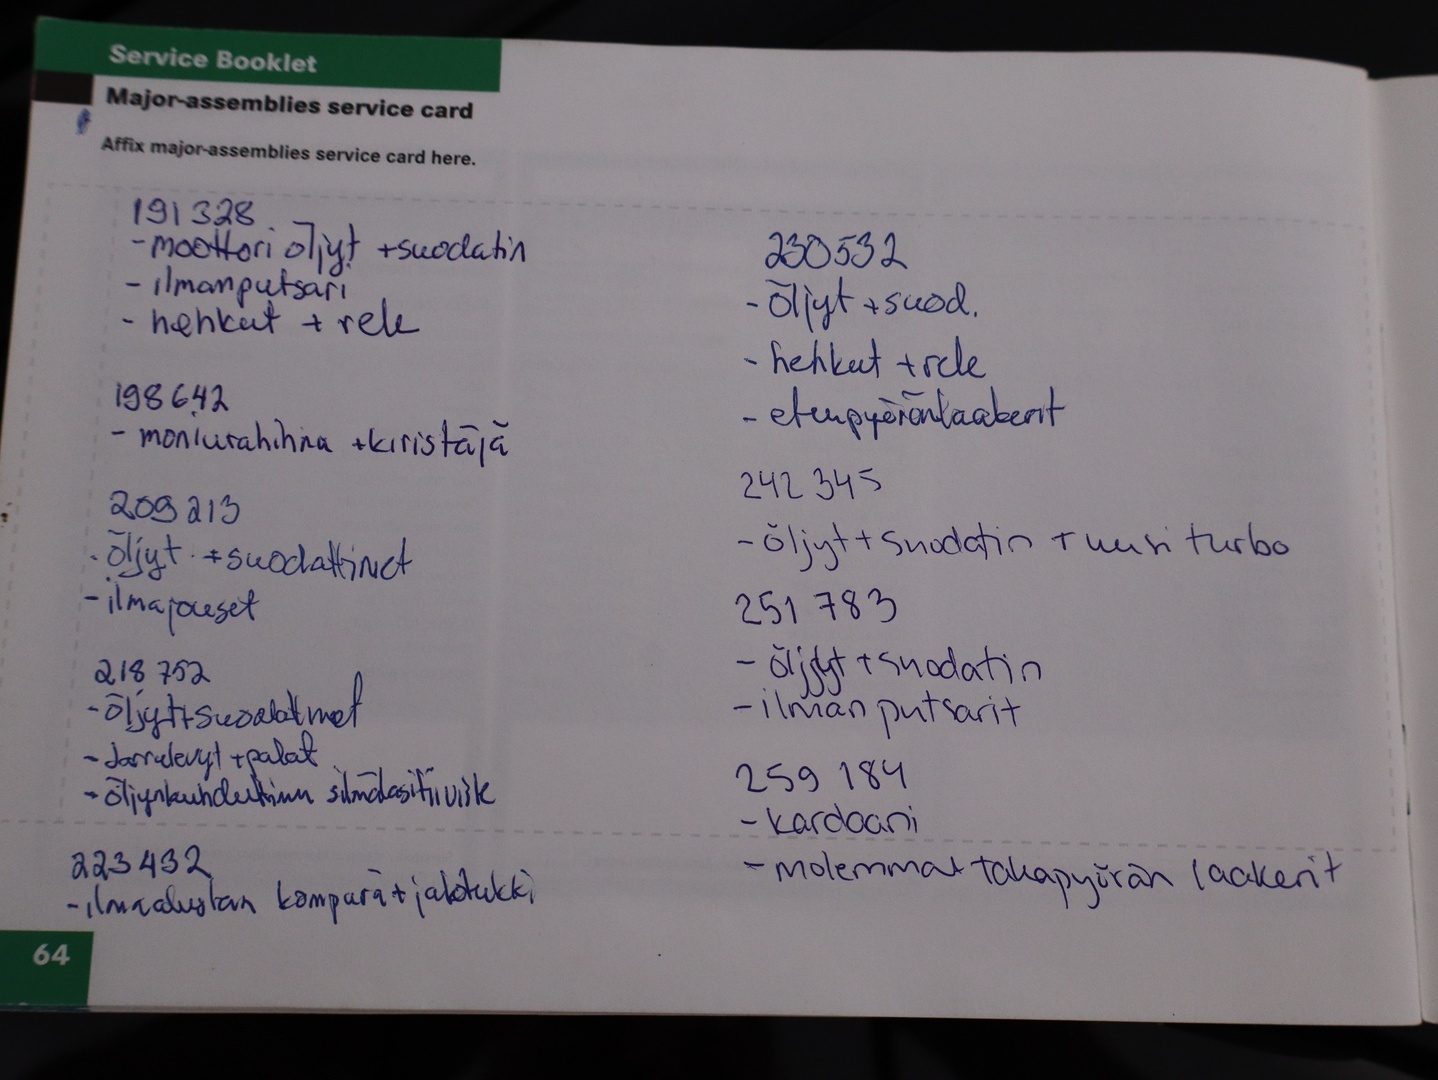 Service Booklet
Major-assemblies service card
Affix major-assemblies service card here.
191328
-moottoriöljyt +suodatin
- ilmanputsari
- hehkut + rele
198642
- moniurahihna +kiristäjä
209213
- öljyt +suodattimet
- ilmajouset
218 752
- öljyt+suodattimet
- Jarrulevyt +palat
- öljynlauhduttimen silmälasitiiviste
223432
- ilmaalustan kompura + jakotukki
230532
- öljyt +suod.
- hehkut +rele
- etupyöränlaakerit
242 345
- öljyt + suodatin + uusi turbo
251 783
- öljyt +suodatin
- ilman putsarit
259 184
- kardaani
- molemmat takapyörän laakerit
64